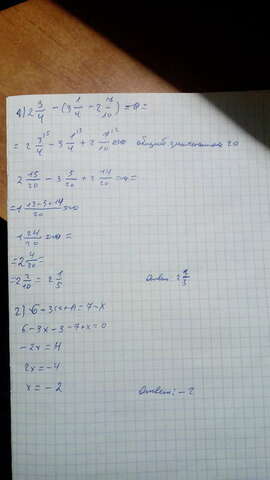 2 3/4 - (3 1/4 - 2 7/10) =
= 2 3/4 - 3 1/4 + 2 /10 общий знаменатель 20
2 15/20 - 3 5/20 + 2 14/20 =
= 1 15-5+14/20
1 24/20 =
= 2 4/20 =
= 2 2/10 = 2 1/5
Ответ: 2
2) 6 - 3(x+1) = 7-x
6 - 3x - 3 - 7 + x = 0
-2x = 4
2x = -4
x = -2
Ответ: -2